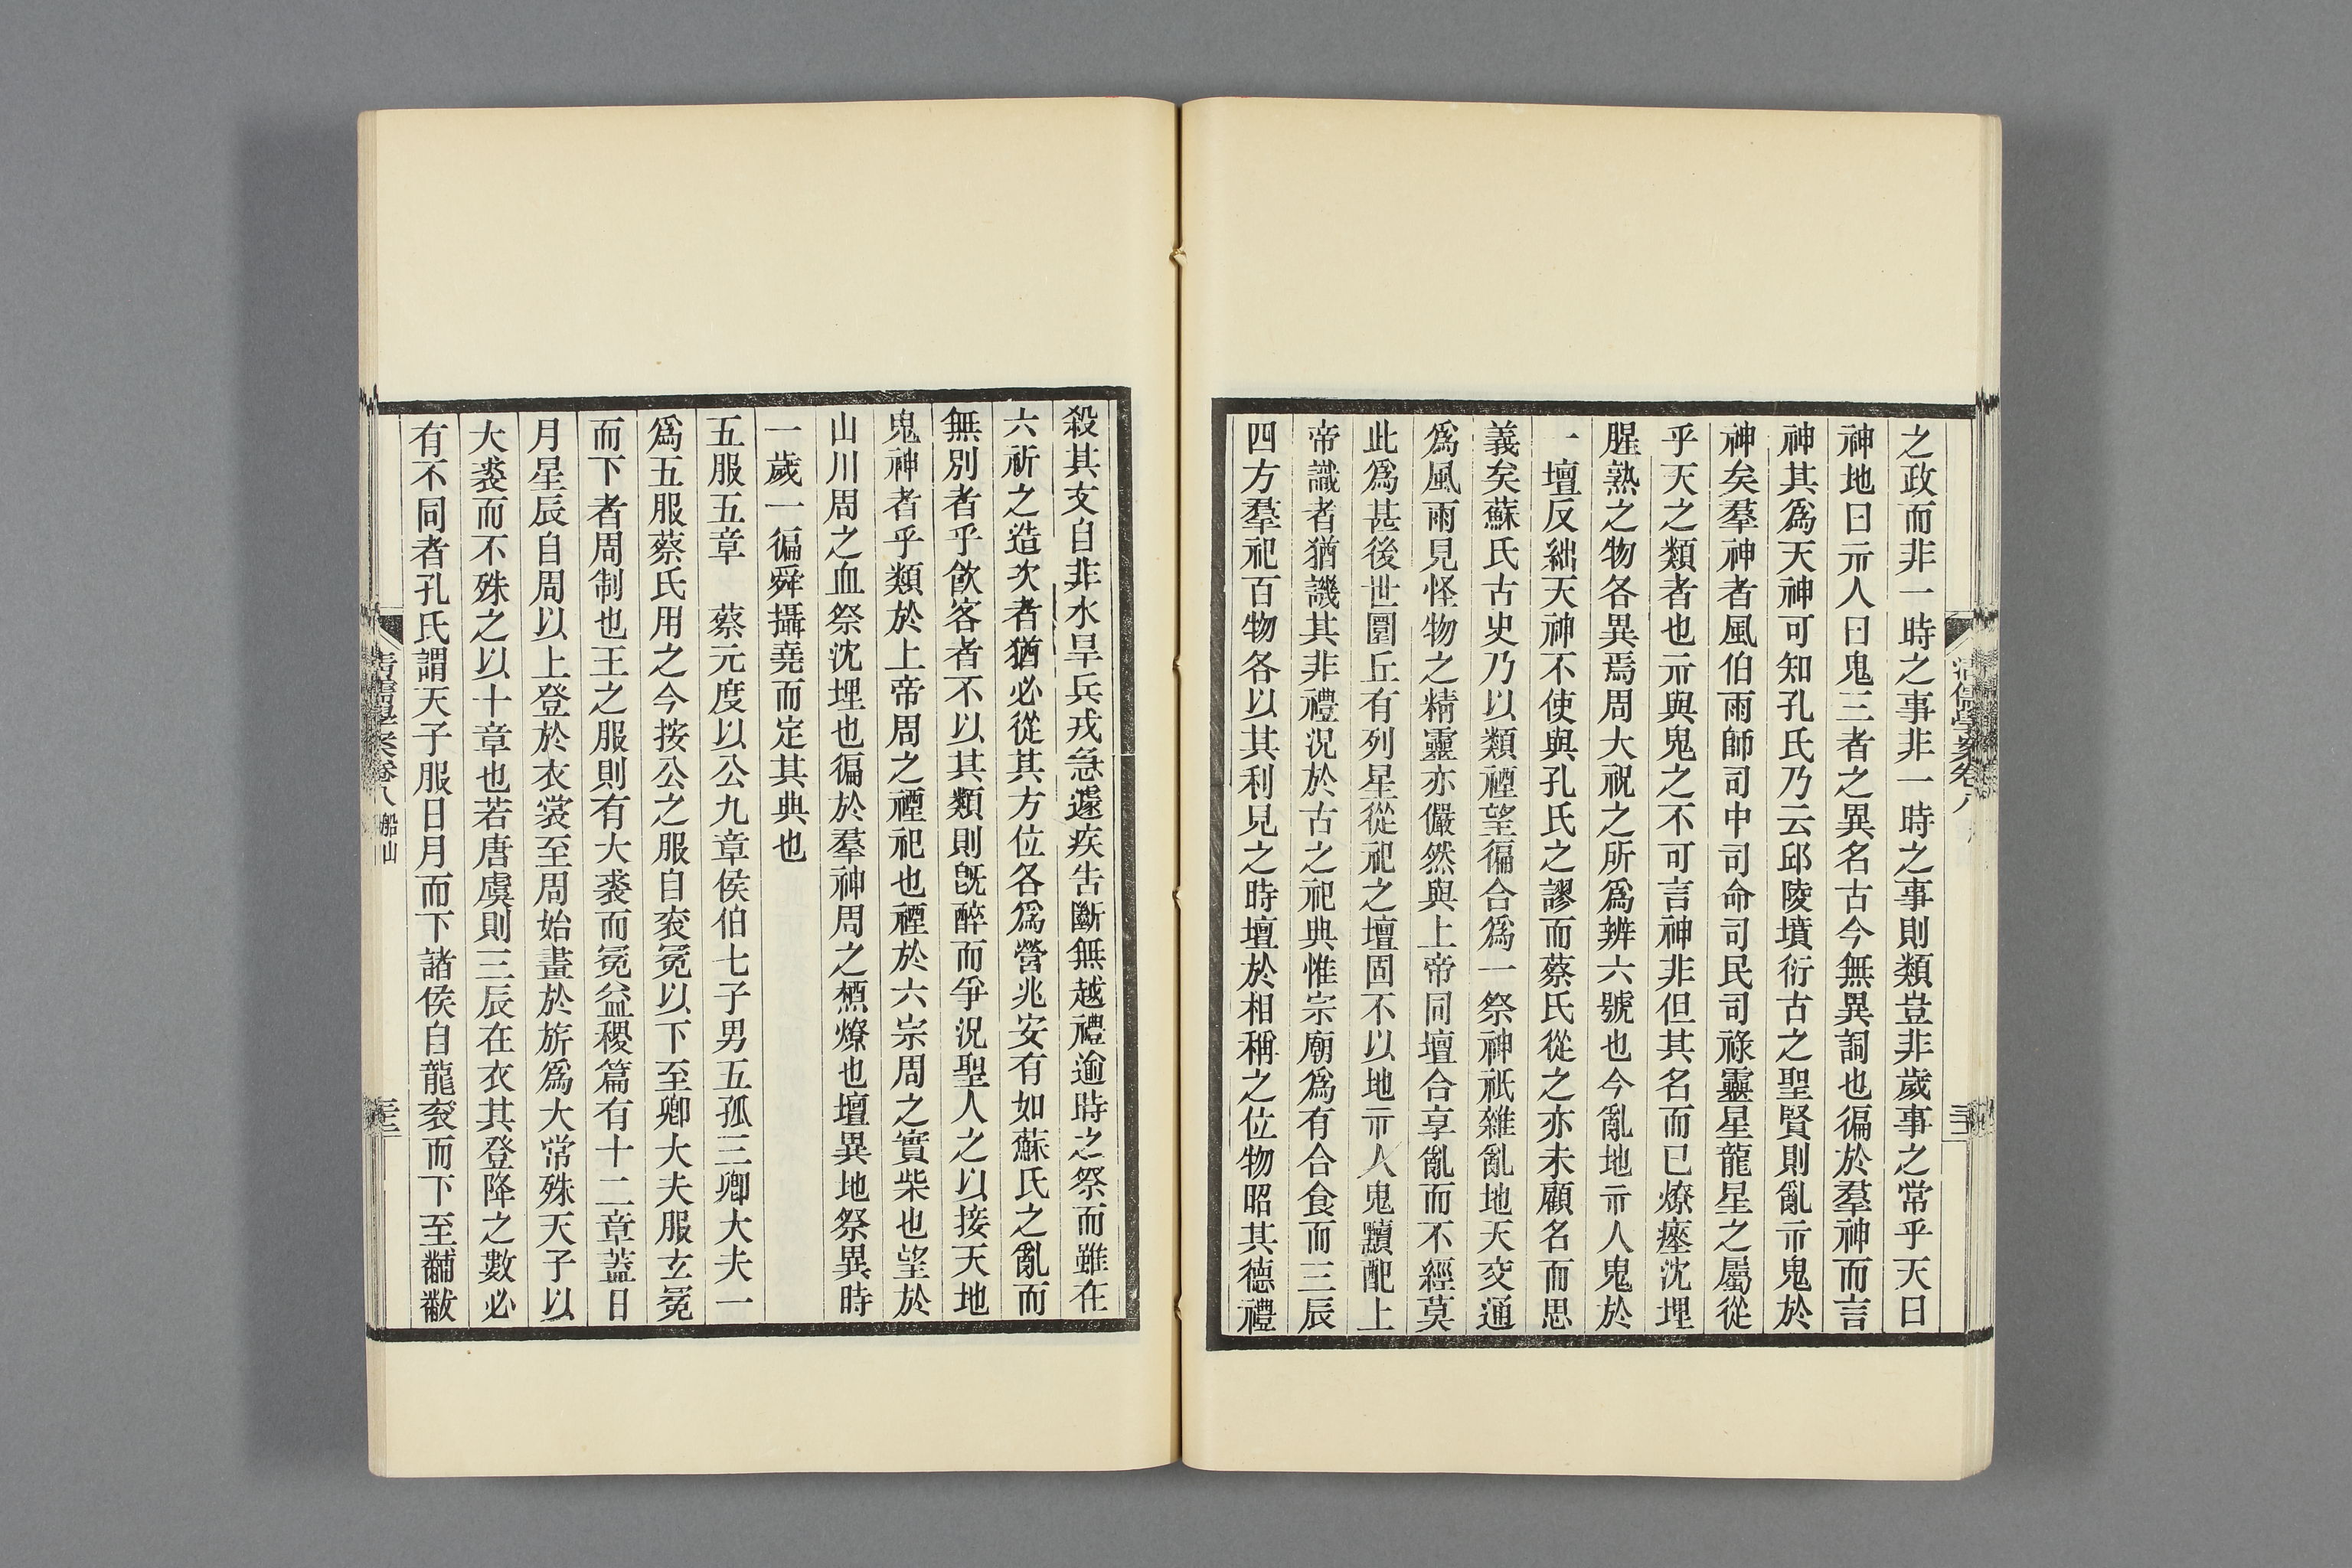 之政而非一時之事非一時之事則類豈非歲事之常乎天曰
神地曰示人曰鬼三者之異名古今無異詞也徧於羣神而言
神其爲天神可知孔氏乃云邱陵墳衍古之聖賢則亂示鬼於
神矣羣神者風伯雨師司中司命司民司祿靈星龍星之屬從
乎天之類者也示與鬼之不可言神非但其名而已燎瘞沈埋
腥熟之物各異焉周大祝之所爲辨六號也今亂地示人鬼於
一壇反絀天神不使與孔氏之謬而蔡氏從之亦未顧名而思
義矣蘇氏古史乃以類禋望徧合爲一祭神祇雜亂地天交通
爲風雨見怪物之精靈亦儼然與上帝同壇合享亂而不經莫
此爲甚後世圜丘有列星從祀之壇固不以地示人鬼黷配上
帝識者猶譏其非禮況於古之祀典惟宗廟爲有合食而三辰
四方羣祀百物各以其利見之時壇於相稱之位物昭其德禮
殺其文自非水旱兵戎急遽疾告斷無越禮逾時之祭而雖在
六祈之造次者猶必從其方位各爲營兆安有如蘇氏之亂而
無別者乎飲客者不以其類則旣醉而爭況聖人之以接天地
鬼神者乎類於上帝周之禋祀也禋於六宗周之實柴也望於
山川周之血祭沈埋也徧於羣神周之槱燎也壇異地祭異時
一歲一徧舜攝堯而定其典也
五服五章　蔡元度以公九章侯伯七子男五孤三卿大夫一
爲五服蔡氏用之今按公之服自袞冕以下至卿大夫服玄冕
而下者周制也王之服則有大裘而冕益稷篇有十二章蓋日
月星辰自周以上登於衣裳至周始畫於旂爲大常殊天子以
大裘而不殊之以十章也若唐虞則三辰在衣其登降之數必
有不同者孔氏謂天子服日月而下諸侯自龍袞而下至黼黻
清儒學案卷八 船山